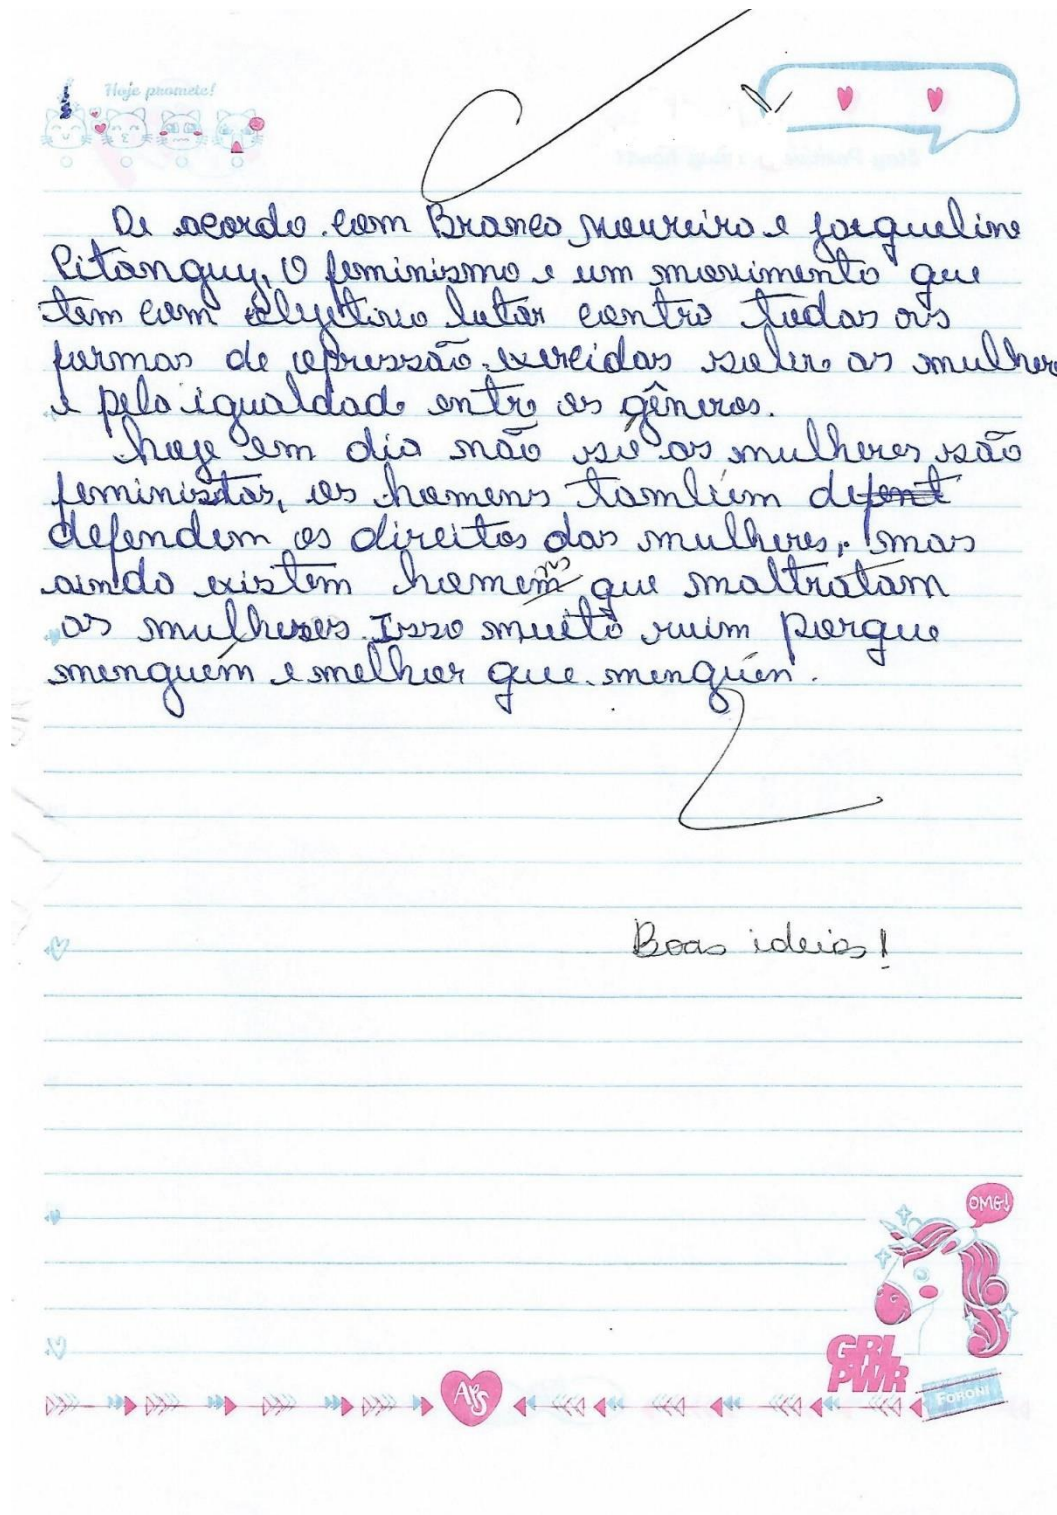 Hoje promete!
De acordo com Branca Moureira e Jacqueline
Pitanguy, O feminismo e um movimento que
tem com objetivo lutar contra todas as
formas de opressão exercidas sobre as mulher
e pela igualdade entre os gêneros.
hoje em dia não só as mulheres são
feministas, os homens também defent
defendem os direitos das mulheres, mas
ainda existem homens que maltratam
as mulheres. Isso muito ruim porque
menguém e melhor que menguén.
Boas ideias!
OMG!
GRL
PWR
APS
FORONI